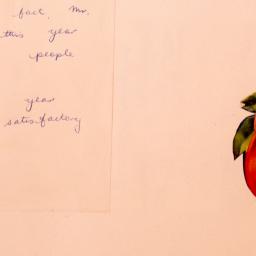 fact, Mr.
this year
people
year
satisfactory